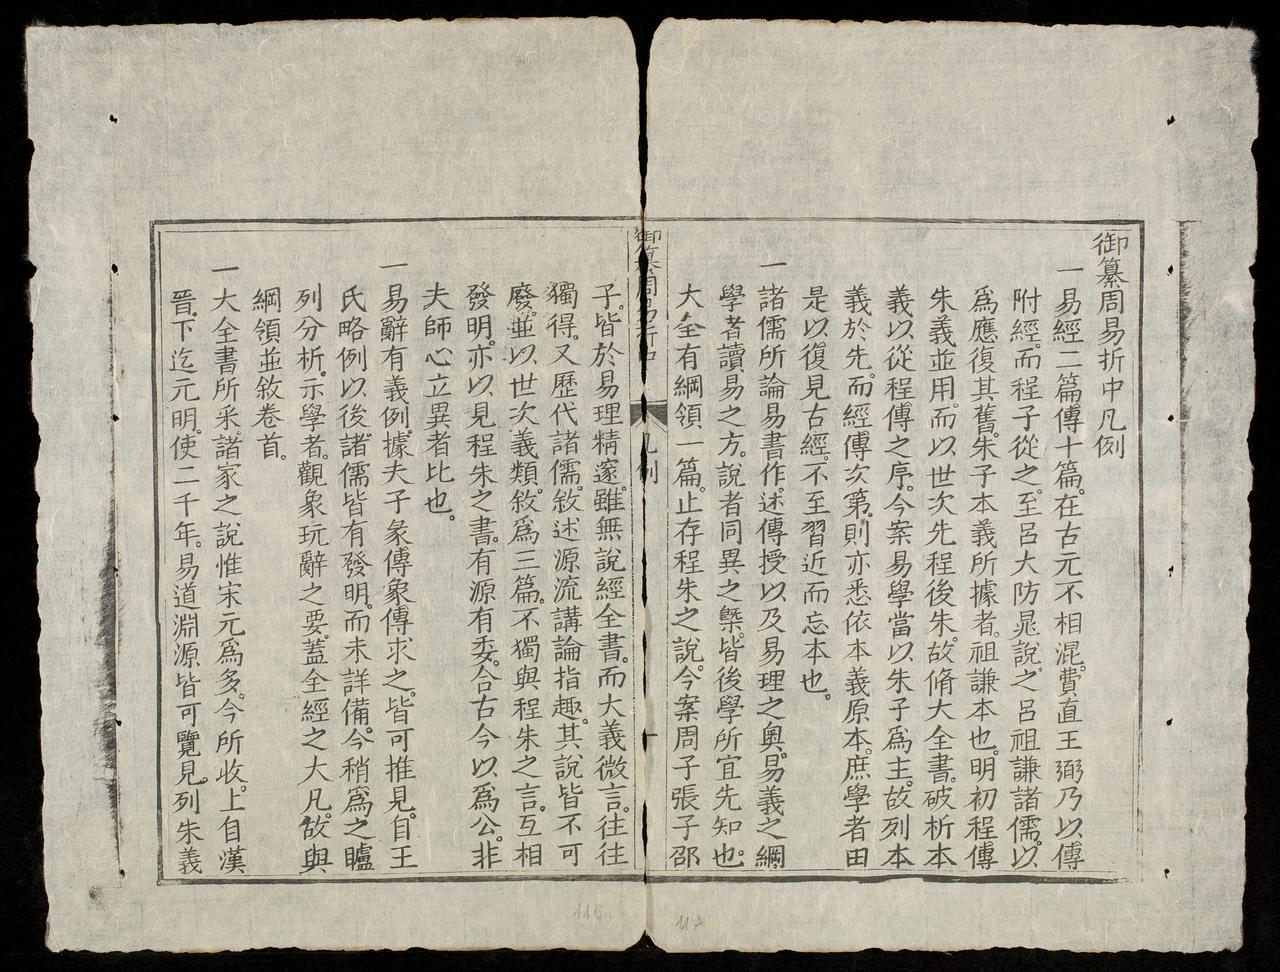 御纂周易折中凡例
一易經二篇傳十篇。在古元不相混。費直王弼乃以傳
附經。而程子從之。至呂大防晁說之呂祖謙諸儒。以
爲應復其舊。朱子本義所據者。祖謙本也。明初程傳
朱義並用。而以世次先程後朱。故脩大全書。破析本
義以從程傳之序。今案易學當以朱子爲主。故列本
義於先。而經傳次第。則亦悉依本義原本。庶學者由
是以復見古經。不至習近而忘本也。
一諸儒所論易書作。述傳授以及易理之奧。易義之綱
學者讀易之方。說者同異之槩。皆後學所宜先知也。
大全有綱領一篇。止存程朱之說。今案周子張子邵
御纂周易折中
凡例
一
子。皆於易理精邃。雖無說經全書。而大義微言。往往
獨得。又歷代諸儒。敘述源流。講論指趣。其說皆不可
廢。並以世次義類。敘爲三篇。不獨與程朱之言。互相
發明。亦以見程朱之書。有源有委。合古今以爲公。非
夫師心立異者比也。
一易辭有義例。據夫子彖傳象傳求之。皆可推見。自王
氏略例以後。諸儒皆有發明。而未詳備。今稍爲之臚
列分析。示學者。觀象玩辭之要。蓋全經之大凡。故與
綱領並敘卷首。
一大全書所采諸家之說惟宋元爲多。今所收。上自漢
晉。下迄元明。使二千年。易道淵源皆可覽見。列朱義
116
117